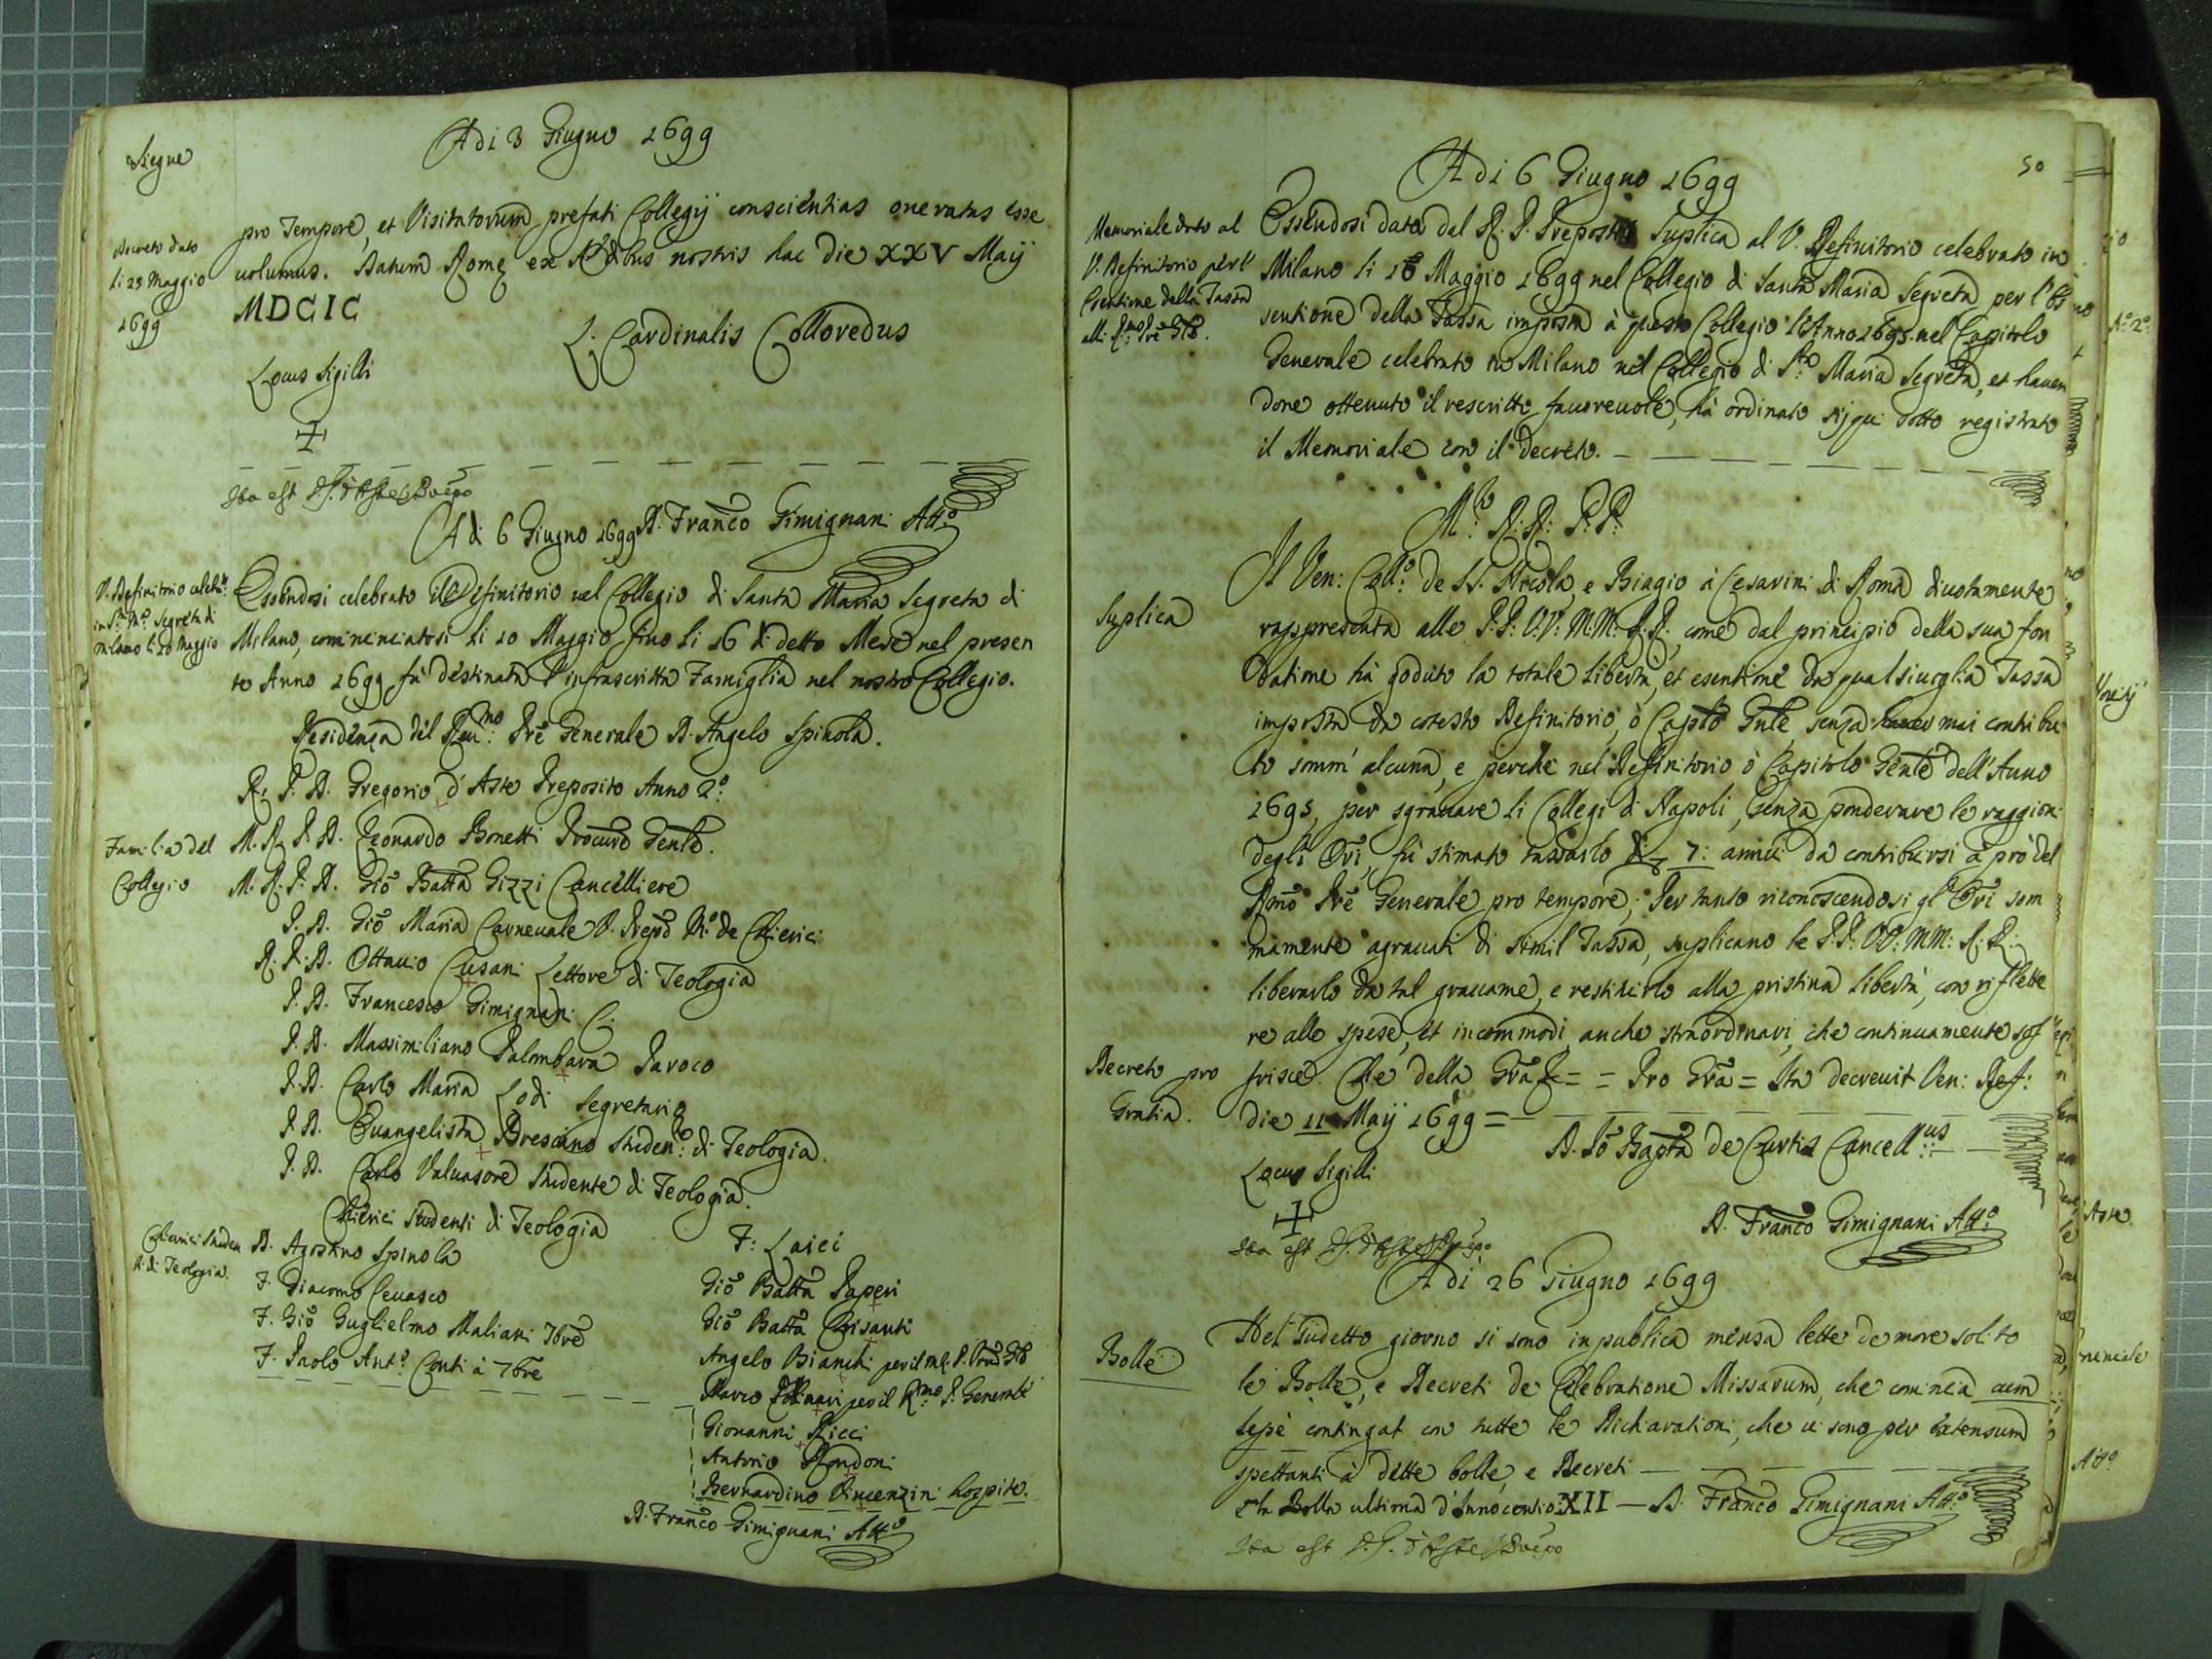 Siegue
A di 3 Giugno 1699
Decreto dato
li 25 Maggio
1699
pro Tempore, et Visitatorum prefati Collegij conscientias oneratas esse
uolumus. Datum Rome ex Ædibus nostris hac die XXV Maij
MDCIC
L. Cardinalis Colloredus
Locus Sigilli
Ita est D. G. d'Aste Prepo
D. Franco Gimignani Atto
A di 6 Giugno 1699
V. Definitorio celebr.
in Sta Ma Segreta di
Milano li 10 Maggio
Essendosi celebrato il Definitorio nel Collegio di Santa Maria Segreta di
Milano, cominciatosi li 10 Maggio fino li 16 di detto Mese nel presen
te Anno 1699 fu destinata l'infrascritta Famiglia nel nostro Collegio.
Residenza del Rmo: Pre Generale D. Angelo Spinola.
Familia del
Collegio
R. P. D. Gregorio d'Aste Preposito Anno 2.o
M. R. P. D. Leonardo Bonetti Procure Gente.
M. R. P. D. Gio Batta Gizzi Cancelliere
P. D. Gio Maria Carneuale V. Prepo M.o de Chierici
R. P. D. Ottauio Cusani Lettore di Teologia
P. D. Francesco Gimignani C.
P. D. Massimiliano Palombara Paroco
P. D. Carlo Maria Lodi Segretario
P. D. Euangelista Bresciano Studen.te di Teologia.
P. D. Carlo Valuasore Studente di Teologia.
Chierici Studenti di Teologia
Chierici Studen
ti di Teologia.
D. Agostino Spinola
F. Giacomo Ceuasco
F. Gio Guglielmo Maliani 7bre
F. Paolo Ant.o Conti à 7bre
F: Laici
Gio Batta Paperi
Gio Batta Crisanti
Angelo Bianchi per il M.R. P. Procre Gle
Marco Pollinari per il Rmo P. Generale
Giouanni Ricci
Antonio Rondoni
Bernardino Vincenzini hospite.
D. Franco Gimignani Atto
50
A di 6 Giugno 1699
Memoriale dato al
V. Definitorio per l'
Esentione della Tassa
al R.mo Pre Gle.
Essendosi data dal R. P. Preposto Suplica al V. Definitorio celebrato in
Milano li 10 Maggio 1699 nel Collegio di Santa Maria Segreta per l'Es
sentione della Tassa imposta à questo Collegio l'Anno 1695. nel Capitolo
Generale celebrato in Milano nel Collegio di S.ta Maria Segreta, et hauen
done ottenuto il rescritto fauoreuole, hà ordinato sij qui sotto registrato
il Memoriale con il decreto.
M.to R: R: P: P:
Suplica
Il Ven: Coll.o de SS. Nicola, e Biagio à Cesarini di Roma diuotamente
rappresenta alle P. P. V. V. M. M. R. R., come dal principio della sua fon
datione hà goduto la totale libertà, et esentione da qualsiuoglia Tassa
imposta da cotesto Definitorio, ò Caplo Gnle senza mai contribui
to somm' alcuna, e perche nel Definitorio ò Capitolo Gente dell'Anno
1695, per sgrauare li Collegi di Napoli, senza ponderare le raggioni
degli Ori, fu stimato tassarlo 7: annui da contribuirsi à prò del
Rmo Pre Generale pro tempore; Per tanto riconoscendosi gl'Ori som
mamente agrauati di simil Tassa, suplicano le P. P. V. V. M. M. R. R.
liberarlo da tal grauame, e restituirlo alla pristina libertà, con riflette
re alle spese, et incommodi anche straordinari, che continuamente sof
frisce. Che della Gra &c = = Pro Gra = Ita decreuit Ven: Def:
Decreto pro
Gratia.
die 11 Maij 1699 =
D. Io Bapta de Curtis Cancell.us
Locus Sigilli
D. Franco Gimignani Atto
Ita est D. G. d'Aste Prepo
A di 26 Giugno 1699
Bolle
Nel sudetto giorno si sono in publica mensa lette de more solito
le Bolle, e Decreti de Celebratione Missarum, che comincia cum
sepe contingat con tutte le Dichiarationi, che ui sono per extensum
spettanti à dette bolle, e Decreti
et la Bolla ultima d'Innocentio XII — D. Franco Gimignani Atto
Ita est D. G. d'Aste Prepo